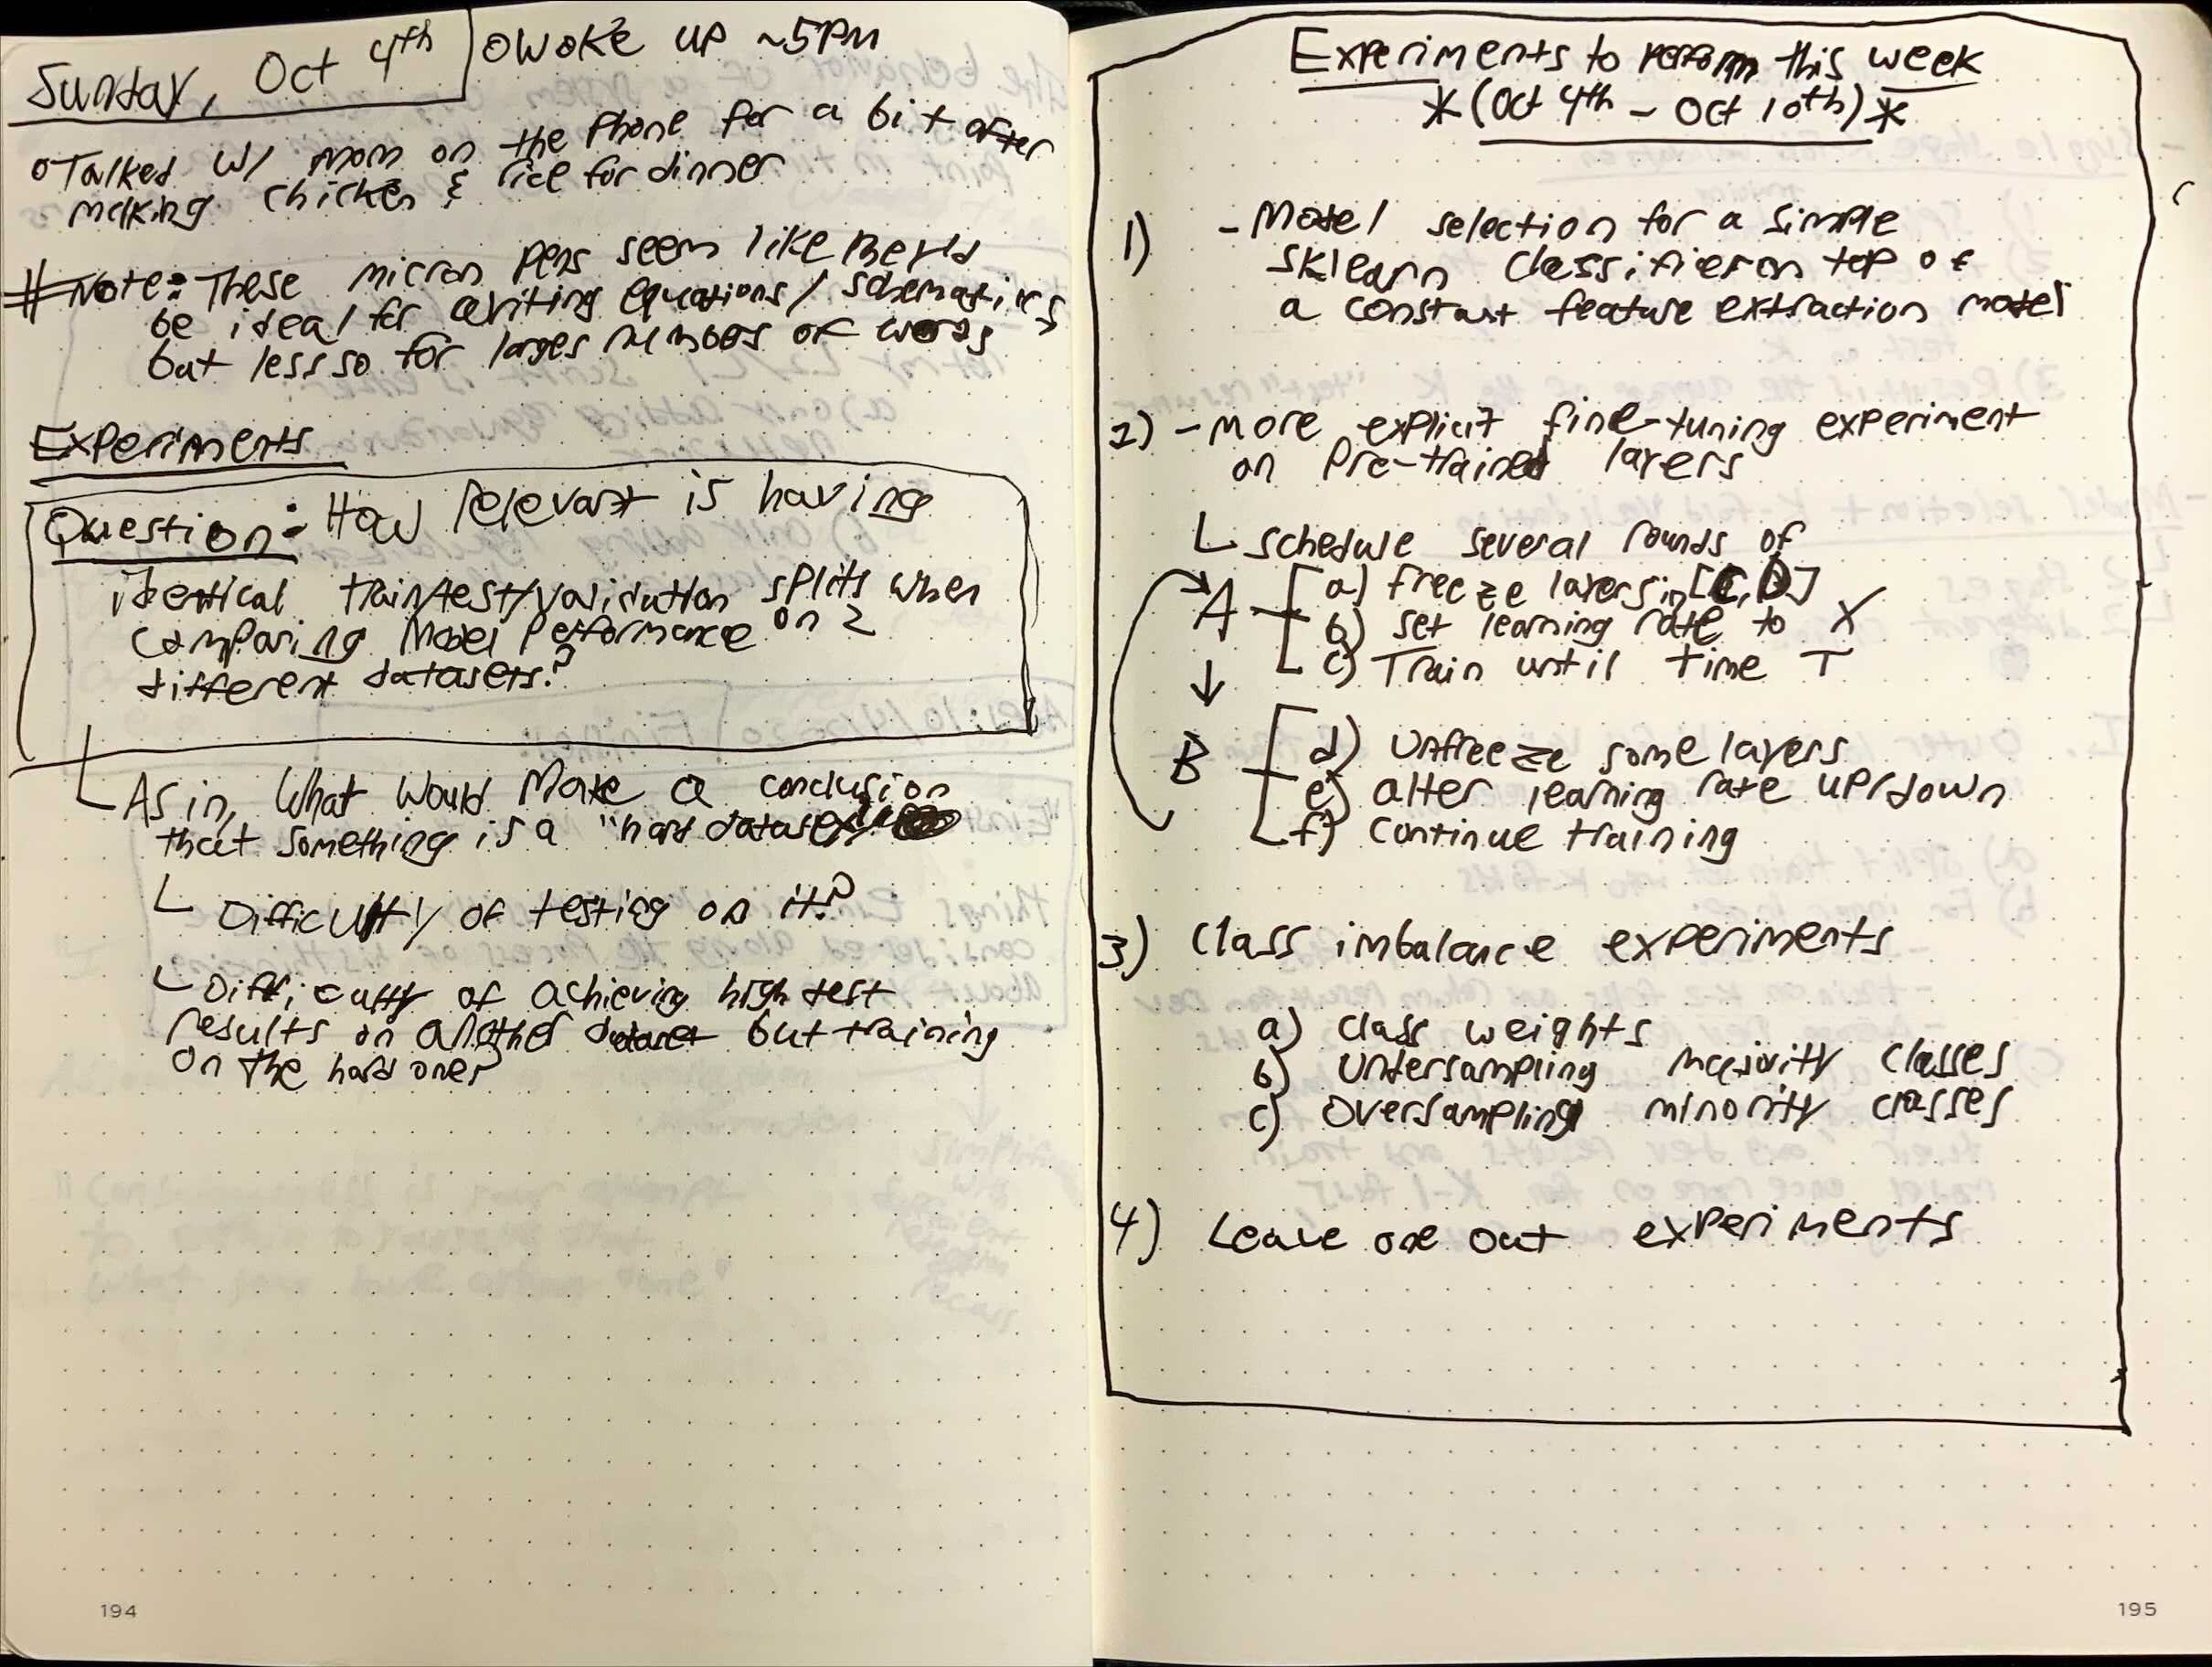 Sunday, Oct 4th
o Woke up ~5PM
o Talked w/ mom on the phone for a bit after
making chicken & rice for dinner
# Note: These micron pens seem like they'd
be ideal for writing equations/schematics
but less so for larger numbers of words
Experiments
Question: How relevant is having
identical train/test/validation splits when
comparing model performance on 2
different datasets?
As in, what would make a conclusion
that something is a "hard dataset"
Difficulty of testing on it?
Difficulty of achieving high test
results on another dataset but training
on the hard one?
194
Experiments to perform this week
*(Oct 4th - Oct 10th)*
1) - Model selection for a simple
sklearn classifier on top of
a constant feature extraction model
2) - More explicit fine-tuning experiment
on pre-trained layers
schedule several rounds of
A a) freeze layers in [C, D]
b) set learning rate to X
c) Train until time T
B d) Unfreeze some layers
e) alter learning rate up/down
f) continue training
3) Class imbalance experiments
a) class weights
b) Undersampling majority classes
c) Oversampling minority classes
4) Leave one out experiments
195